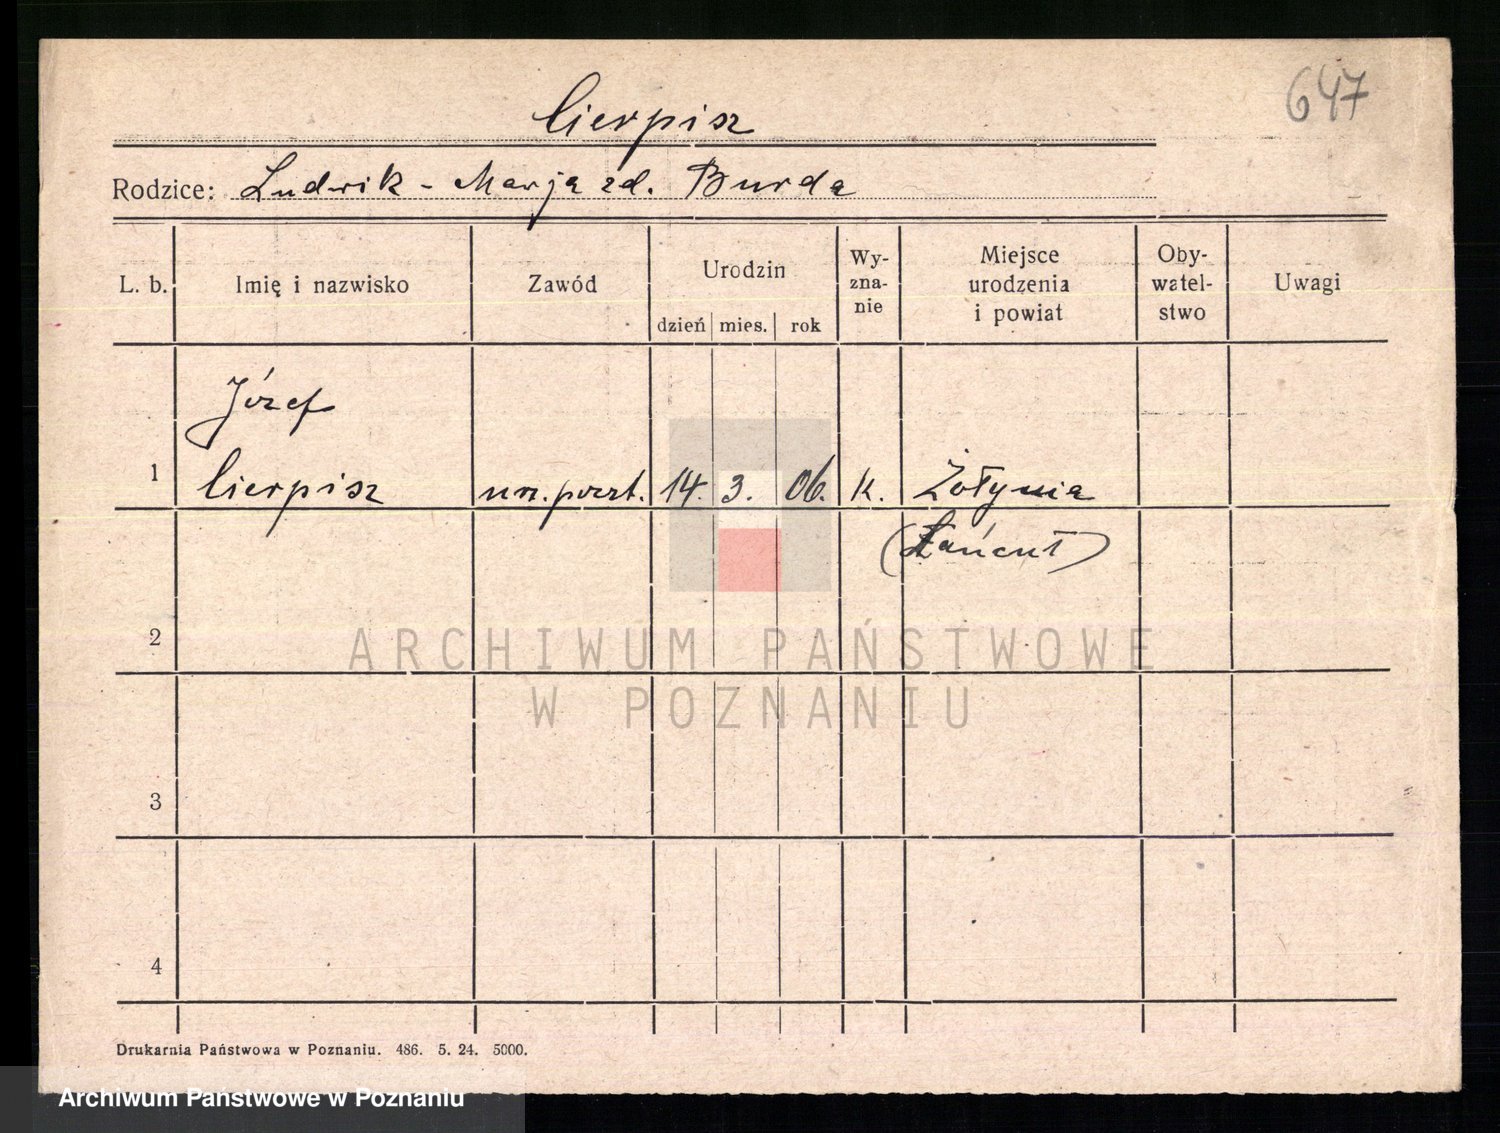 647
Cierpisz
Rodzice: Ludwik - Marja zd. Burda
L. b. Imię i nazwisko Zawód Urodzin dzień mies. rok Wy-zna-nie Miejsce urodzenia i powiat Oby-watel-stwo Uwagi
Józef
1 Cierpisz urz. poczt. 14. 3. 06. k. Żołynia
(Łańcut)
2
ARCHIWUM PAŃSTWOWE
W POZNANIU
3
4
Drukarnia Państwowa w Poznaniu. 486. 5. 24. 5000.
Archiwum Państwowe w Poznaniu